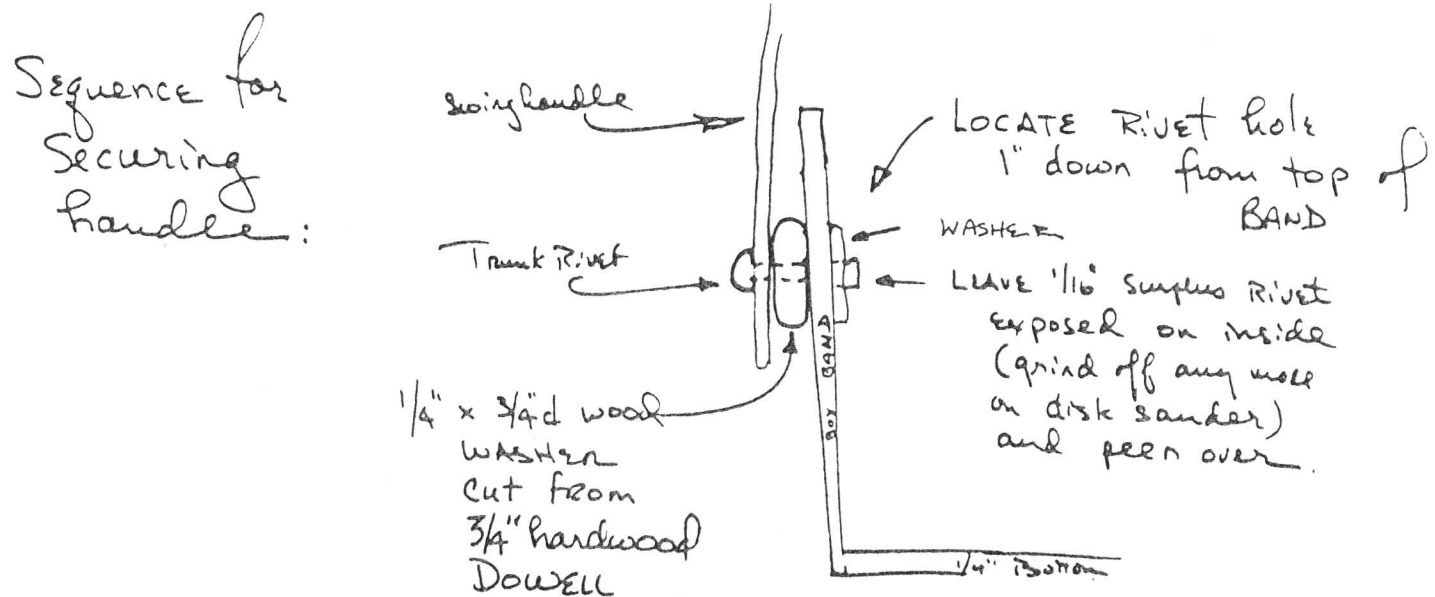 Sequence for
Securing
handle:
swing handle
Trunk Rivet
1/4" x 3/4" d wood
WASHER
Cut from
3/4" hardwood
DOWELL
LOCATE Rivet hole
1" down from top of
BAND
WASHER
LEAVE 1/16" surplus Rivet
exposed on inside
(grind off any more
on disk sander)
and peen over.
BOX BAND
1/4" Bottom